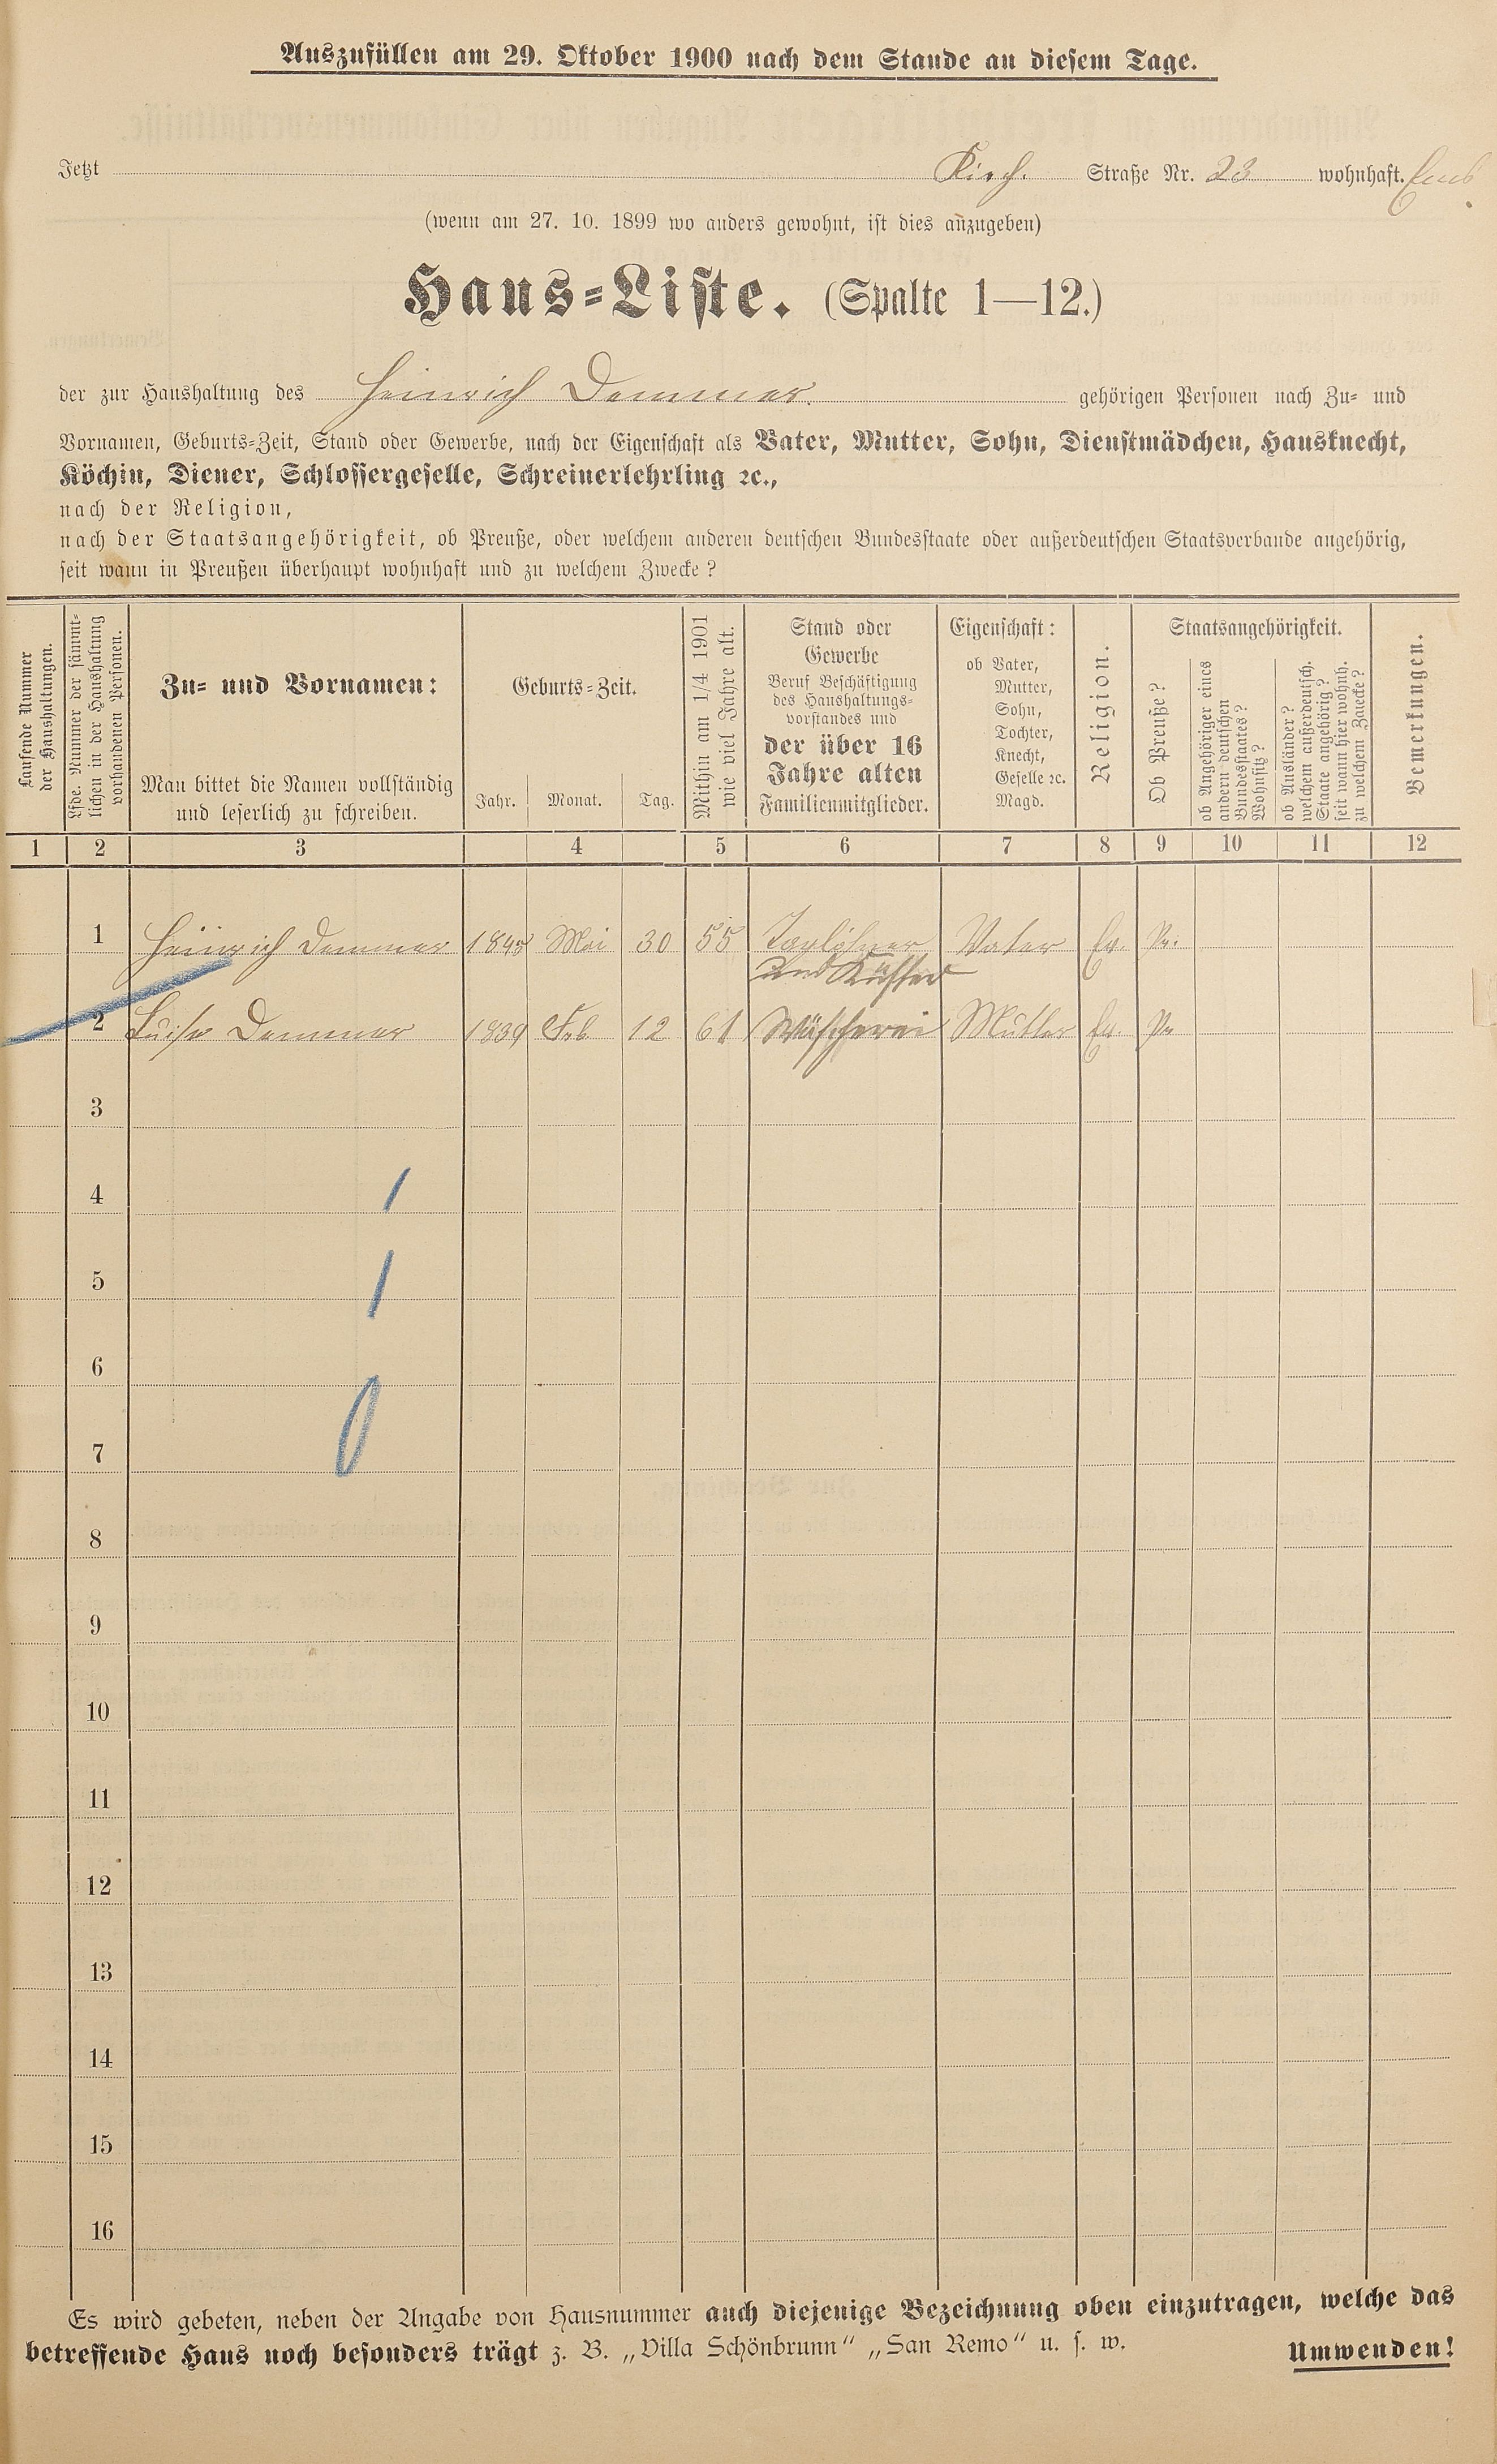 Auszufüllen am 29. Oktober 1900 nach dem Stande an diesem Tage.
Jetzt Kirch. Straße Nr. 23 wohnhaft. Ems.
(wenn am 27. 10. 1899 wo anders gewohnt, ist dies anzugeben)
Haus-Liste. (Spalte 1—12.)
der zur Haushaltung des Heinrich Demmer. gehörigen Personen nach Zu- und
Vornamen, Geburts-Zeit, Stand oder Gewerbe, nach der Eigenschaft als Vater, Mutter, Sohn, Dienstmädchen, Hausknecht,
Köchin, Diener, Schlossergeselle, Schreinerlehrling ꝛc.,
nach der Religion,
nach der Staatsangehörigkeit, ob Preuße, oder welchem anderen deutschen Bundesstaate oder außerdeutschen Staatsverbande angehörig,
seit wann in Preußen überhaupt wohnhaft und zu welchem Zwecke?
Laufende Nummer
der Haushaltungen.
Lfde. Nummer der sämmt-
lichen in der Haushaltung
vorhandenen Personen.
Zu- und Vornamen:
Man bittet die Namen vollständig
und leserlich zu schreiben.
Geburts-Zeit.
Jahr. Monat. Tag.
Mithin am 1/4 1901
wie viel Jahre alt.
Stand oder
Gewerbe
Beruf Beschäftigung
des Haushaltungs-
vorstandes und
der über 16
Jahre alten
Familienmitglieder.
Eigenschaft:
ob Vater,
Mutter,
Sohn,
Tochter,
Knecht,
Geselle ꝛc.
Magd.
Religion.
Staatsangehörigkeit.
Ob Preuße?
ob Angehöriger eines
andern deutschen
Bundesstaates?
Wohnsitz?
ob Ausländer?
welchem außerdeutsch.
Staate angehörig?
seit wann hier wohnh.
zu welchem Zwecke?
Bemerkungen.
1 2 3 4 5 6 7 8 9 10 11 12
1 Heinrich Demmer 1845 Mai 30 55 Taglöhner Vater Ev. Pr.
und Küster
2 Luise Demmer 1839 Feb. 12 61 Wäscherei Mutter Ev. Pr
3
4
5
6
7
8
9
10
11
12
13
14
15
16
Es wird gebeten, neben der Angabe von Hausnummer auch diejenige Bezeichnung oben einzutragen, welche das
betreffende Haus noch besonders trägt z. B. „Villa Schönbrunn“ „San Remo“ u. s. w. Umwenden!